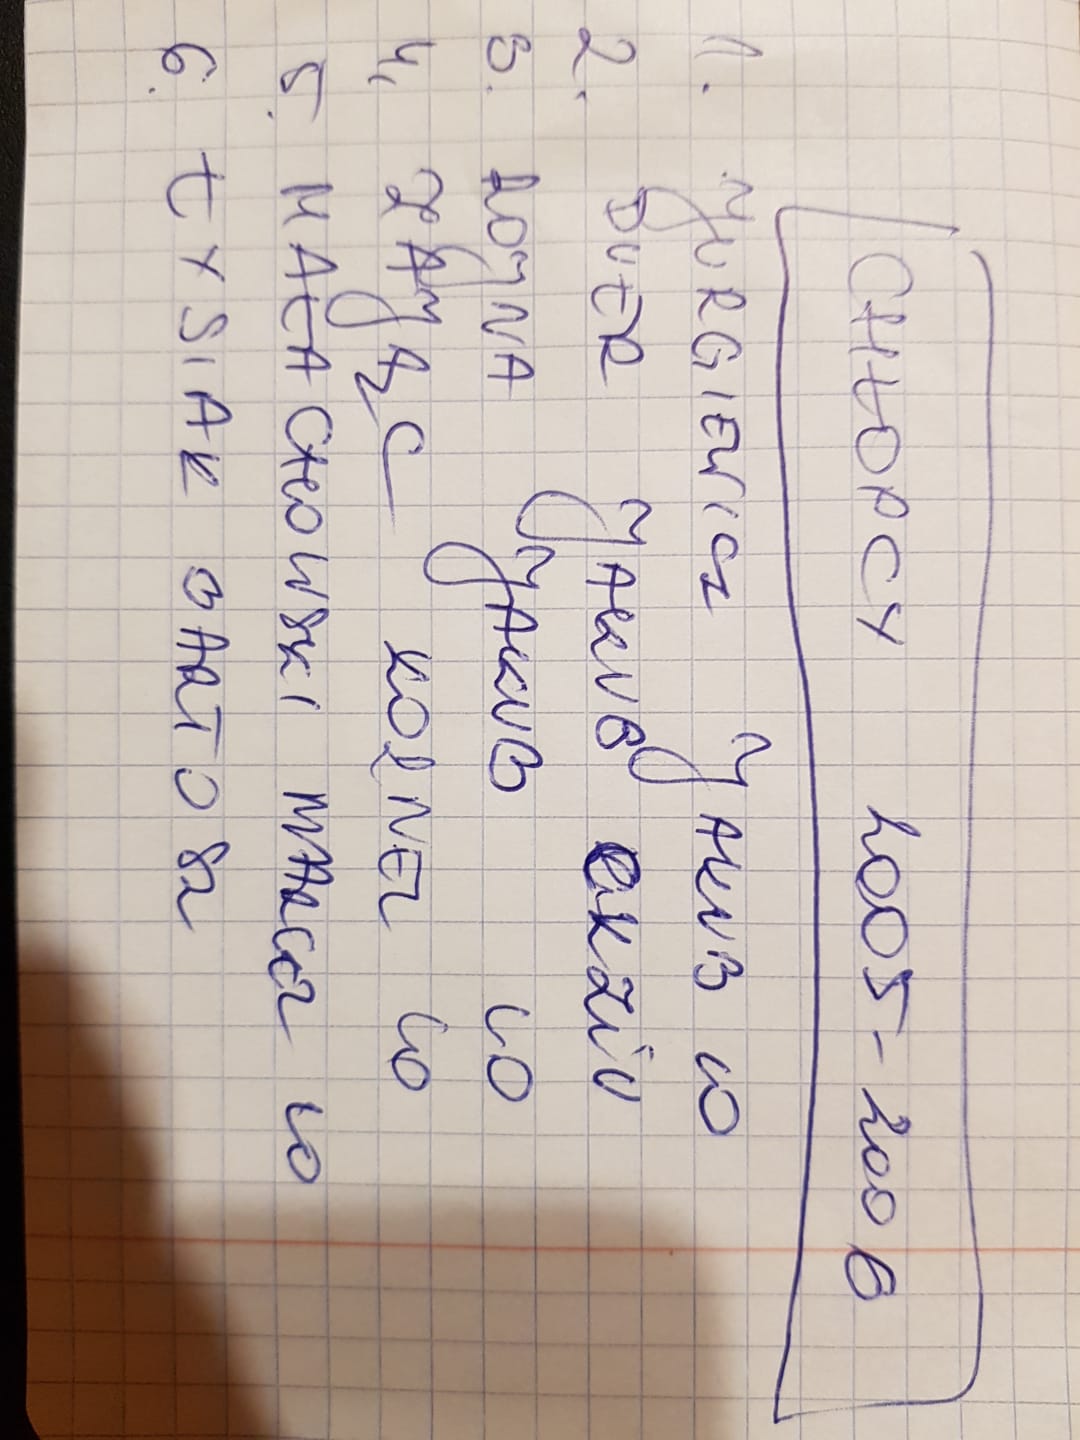 CHŁOPCY 2005-2006
1. JURGIEWICZ JAKUB LO
2. BUTER JAKUB EKZIU
3. ROJNA JAKUB LO
4. ZAJĄC KORNEL LO
5. MAŁACHOWSKI MARCEL LO
6. ŁYSIAK BARTOSZ